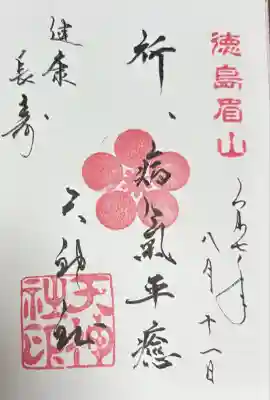 徳島眉山
令和七年
八月十一日
祈、病気平癒
天神社
健康
長寿
天神
社印